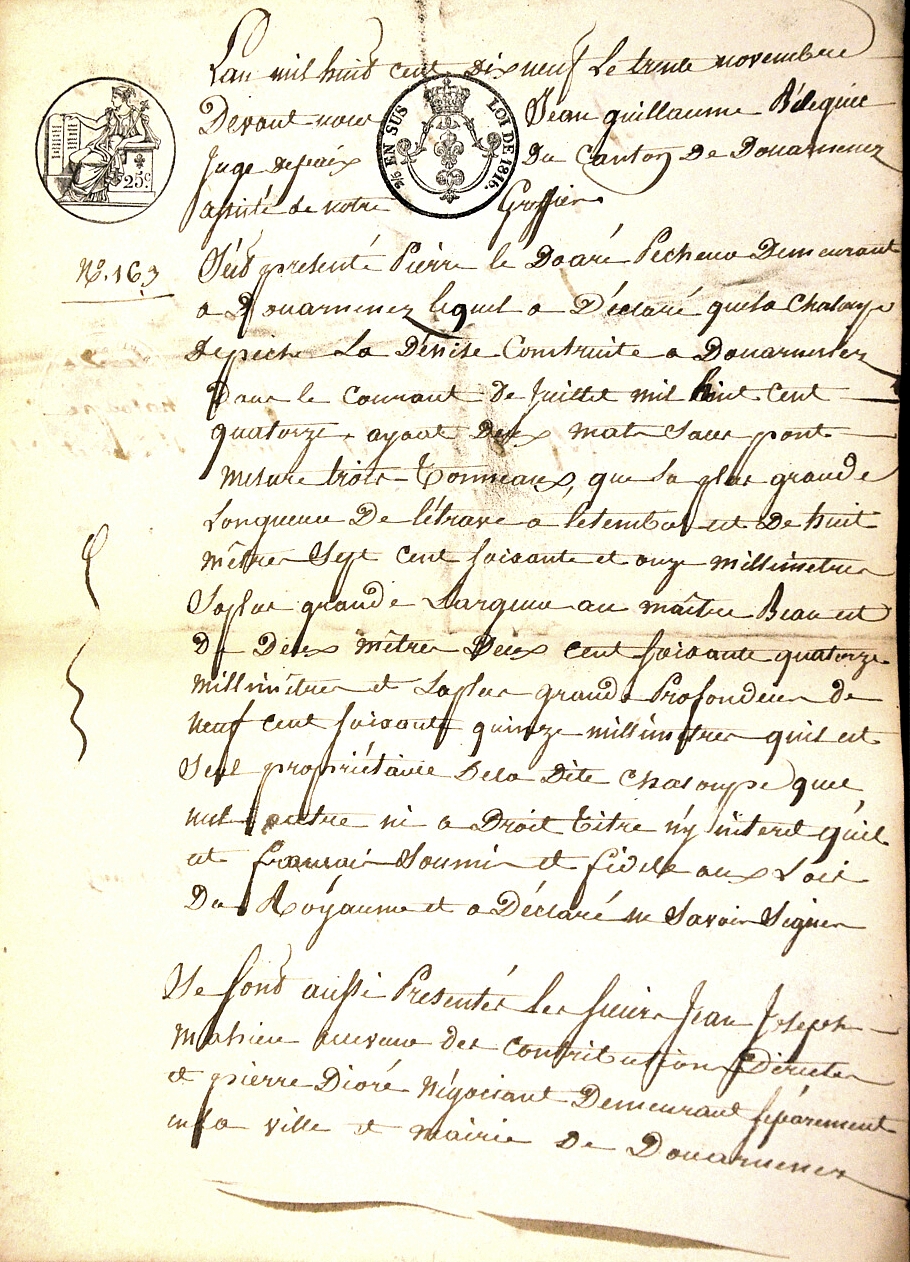 L'an mil huit cent dix neuf le trente novembre
Devant nous Jean guillaume Béléguic
Juge depaix Du Canton De Douarnenez
assisté de notre Greffier
25c
2/6 EN SUS LOI DE 1816.
No. 163
S'est presenté Pierre le Doaré Pecheur Demeurant
a Douarnenez lequel a Déclaré quela Chaloupe
depêche La Dénise Construite a Douarnenez
Dans le courant de Juillet mil huit cent
quatorze, ayant Deux mats sans pont
mesure trois Tonneaux, que sa plus grande
Longueur De l'étrave a letembot est de huit
mêtres Sept cent soixante et onze millimetres
Saplus grande Largeur au maître Beau est
De Deux mêtres Deux cent soixante quatorze
millimètres et Saplus grande Profondeur de
neuf cent soixante quinze millimètres quil est
Seul propriétaire Dela Dite Chaloupe que
nul autre ni a Droit titre n'y interet qu'il
est francais Soumis et fidele aux Lois
Du Róyaume et a Déclaré ne Savoir Signer
Se sont aussi Présentés les sieurs Jean Joseph
Mahieu receveur des contributions Directes
et pierre Dioré Négociant Demeurant séparément
enla ville et Mairie De Douarnenez